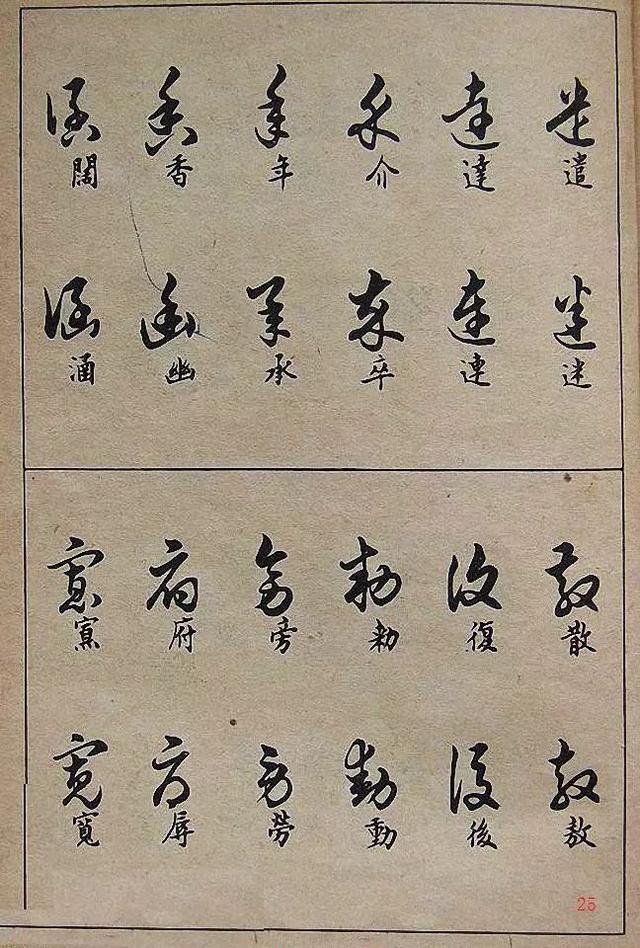 遣
迷
達
連
介
卒
年
承
香
幽
闊
涵
散
敖
復
後
勅
動
旁
勞
府
辱
寡
寬
25